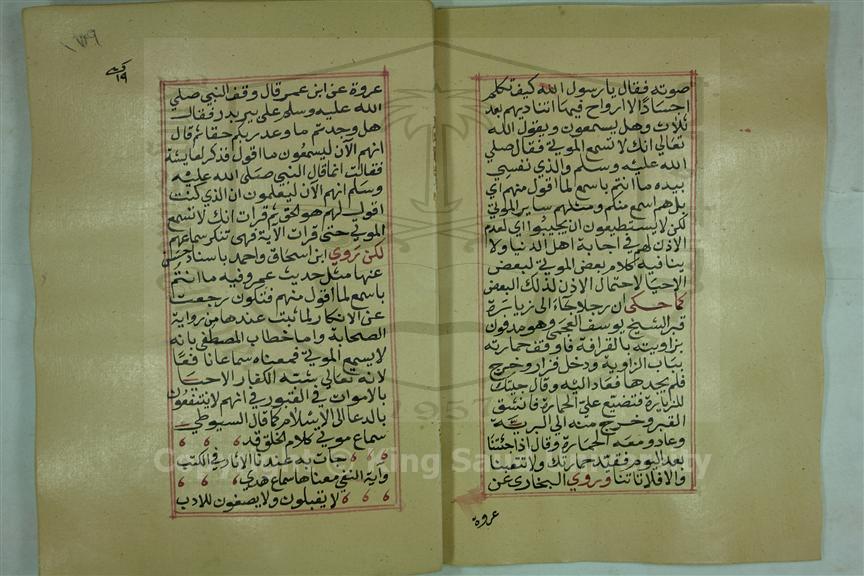 صوته فقال يا رسول الله كيف تكلم
اجسادا لا ارواح فيها اتناديهم بعد
ثلاث وهل يسمعون ويقول الله
تعالى انك لا تسمع الموتى فقال صلى
الله عليه وسلم والذي نفسي
بيده ما انتم باسمع لما اقول منهم اي
بل هم اسمع منكم ومثلهم ساير الموتى
لكن لا يستطيعون ان يجيبوا اي لعدم
الاذن لهم في اجابة اهل الدنيا ولا
ينافيه كلام بعض الموتى لبعض
الاحيا لاحتمال الاذن لذلك البعض
كما حكى ان رجلا جاء الى زيارة
قبر الشيخ يوسف العجمي وهو مدفون
بزاويته بالقرافة فاوقف حمارته
بباب الزاوية ودخل فزار وخرج
فلم يجدها فعاد اليه وقال جيتك
للزيارة فتضيع علي الحمارة فانشق
القبر وخرج منه الى البرية
وعاد ومعه الحمارة وقال اذا جئتنا
بعد اليوم فقيد حمارتك ولا تتعبنا
والا فلا تاتنا وروي البخاري عن
عروة
١٧٤٩
١٩
عروة عن ابن عمر قال وقف النبي صلى
الله عليه وسلم على بير بدر فقال
هل وجدتم ما وعد ربكم حقا ثم قال
انهم الآن ليسمعون ما اقول فذكر لعايشة
فقالت انما قال النبي صلى الله عليه
وسلم انهم الآن ليعلمون ان الذي كنت
اقول لهم هو الحق ثم قرات انك لا تسمع
الموتى حتى قرات الآية فهي تنكر سماعهم
لكن روي ابن اسحاق واحمد باسناد حسن
عنها مثل حديث عمر وفيه ما انتم
باسمع لما اقول منهم فتكون رجعت
عن الانكار لما ثبت عندها من رواية
الصحابة واما خطاب المصطفى بانه
لا يسمع الموتى فمعناه سماعا نافعا
لانه تعالى شبه الكفار الاحيا
بالاموات في القبور في انهم لا ينتفعون
بالدعا الى الاسلام كما قال السيوطي
سماع موتى كلام الخلق قد
جات به عندنا الاثار في الكتب
واية النفي معناها سماع هدى
لا يقبلون ولا يصغون للادب
Copyright © King Saud University
1957